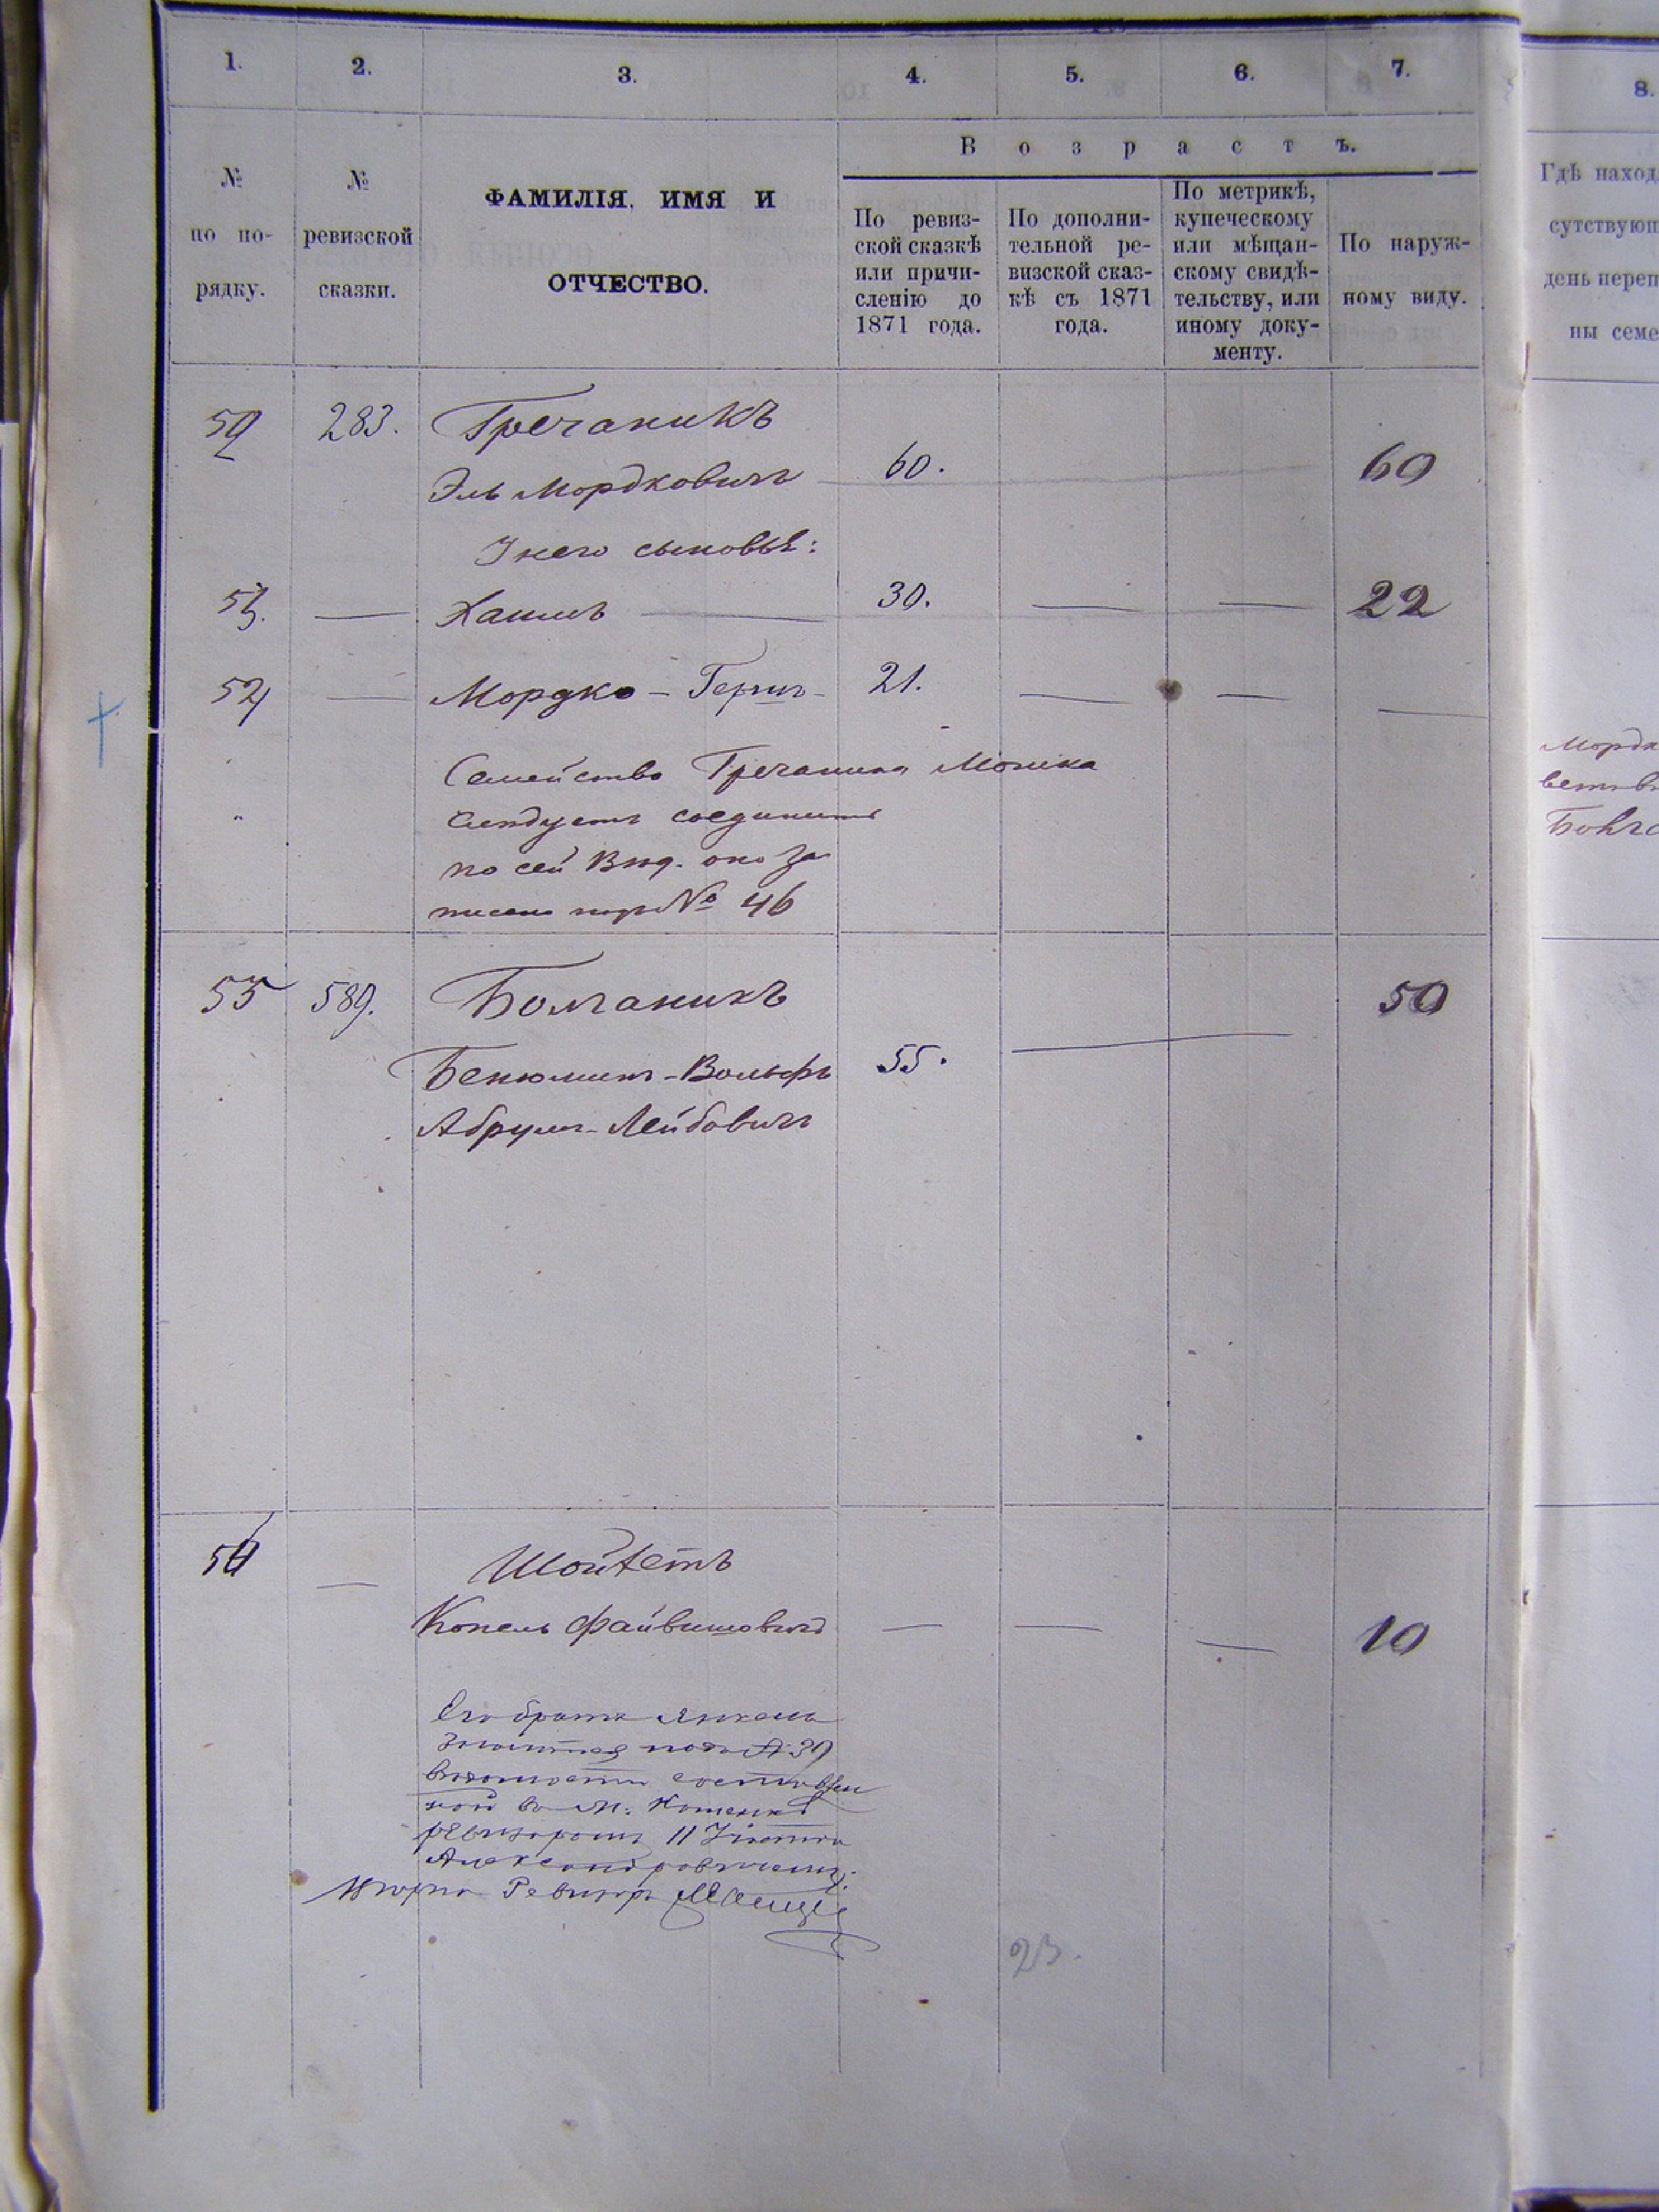 1. 2. 3. 4. 5. 6. 7. 8.
В о з р а с т ъ.
№ по по-рядку.
№ ревизской сказки.
ФАМИЛІЯ, ИМЯ И
ОТЧЕСТВО.
По ревиз-
ской сказкѣ
или причи-
сленію до
1871 года.
По дополни-
тельной ре-
визской сказ-
кѣ съ 1871
года.
По метрикѣ,
купеческому
или мѣщан-
скому свидѣ-
тельству, или
иному доку-
менту.
По наруж-
ному виду.
Гдѣ наход
сутствующ
день переп
ны семе
283. Гречаникъ
Эль Мордковичъ 60. 60
У него сыновья:
53. — Хаимъ — 30. — — 22
54 — Мордко - Гершъ - 21. — — —
Семейство Гречаника Мошка
слѣдуетъ соединить
по сей вѣд. оно за
писано подъ № 46
Мордк
55 589. Болганикъ 50
Бенюминъ - Вольфъ 55. —
Абрумъ - Лейбовичъ
— Шойхетъ
Копель Файвишовичъ — — — 10
Его братъ Янкель
подъ № 39
ревизоромъ II Участка
Александровичемъ.
Ревизоръ
23.